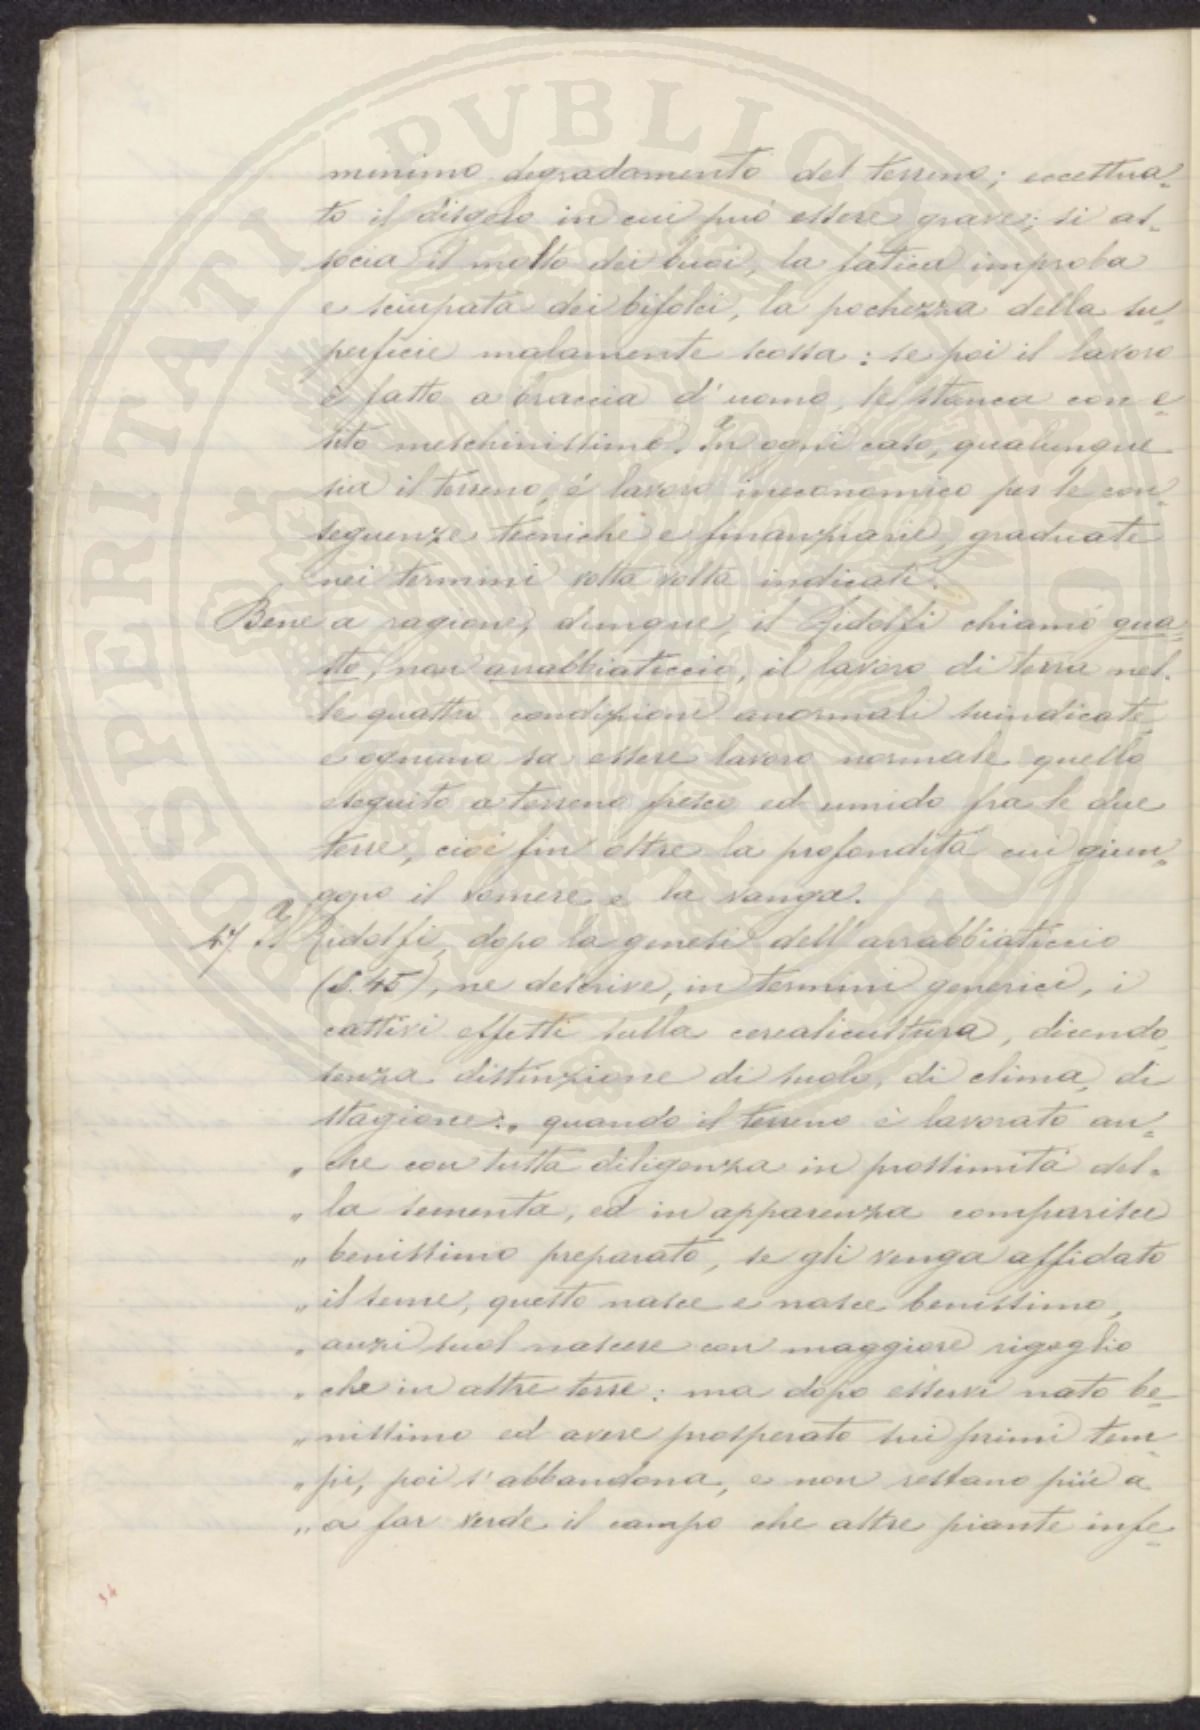 minimo degradamento del terreno; eccettua-
to il disgelo in cui può essere grave; si as-
socia il molto dei buoi, la fatica improba
e sciupata dei bifolci, la pochezza della su-
perficie malamente scossa: se poi il lavoro
è fatto a braccia d'uomo, le stanca con e-
sito meschinissimo. In ogni caso, qualunque
sia il terreno, é lavoro ineconomico per le con-
seguenze tecniche e finanziarie, graduate
nei termini volta volta indicati.
Bene a ragione, dunque, il Ridolfi chiamó gua-
sto, non arrabbiaticcio, il lavoro di terra nel-
le quattro condizioni anormali suindicate
e ognuno sa essere lavoro normale quello
eseguito a terreno fresco ed umido fra le due
terre, cioé fin oltre la profonditá cui giun-
gono il vomere e la vanga.
47. Il Ridolfi, dopo la genesi dell'arrabbiaticcio
(S. 45), ne descrive, in termini generici, i
cattivi effetti sulla cerealicultura, dicendo
senza distinzione di suolo, di clima, di
stagione: „ quando il terreno è lavorato an-
„ che con tutta diligenza in prossimitá del-
„ la sementa, ed in apparenza comparisce
„ benissimo preparato, se gli venga affidato
„ il seme, questo nasce e nasce benissimo,
„ anzi suol nascere con maggiore rigoglio
„ che in altre terre: ma dopo esservi nato be-
„ nissimo ed avere prosperato sui primi tem-
„ pi, poi s'abbandona, e non restano più a
„ a far verde il campo che altre piante infe-
34
PROSPERITATI PVBLICAE